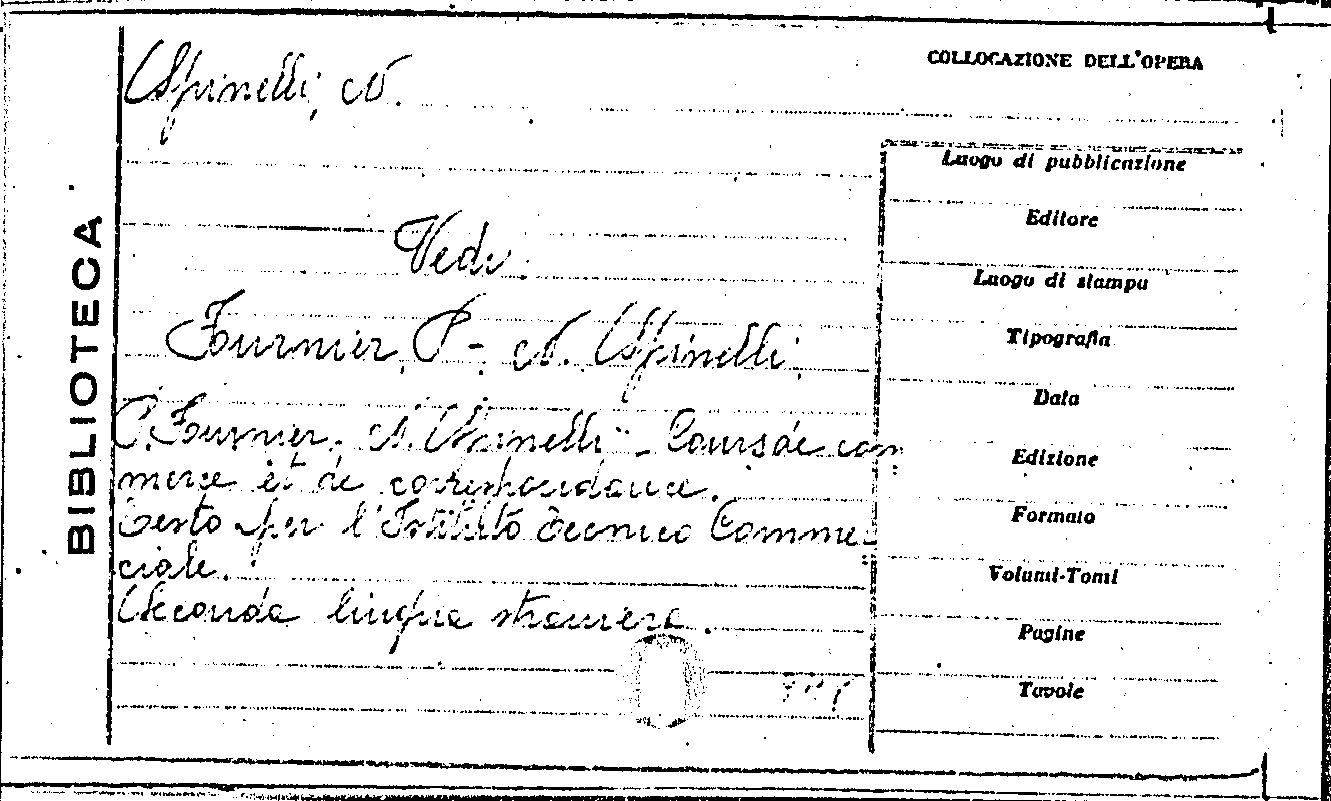 Spinelli, N.
COLLOCAZIONE DELL'OPERA
BIBLIOTECA
Vedi:
Fournier, P. - N. Spinelli,
P. Fournier, N. Spinelli - Cours de com
merce et de correspondance.
Testo per l'Istituto Tecnico Commer
ciale.
Seconda lingua straniera.
Luogo di pubblicazione
Editore
Luogo di stampa
Tipografia
Data
Edizione
Formato
Volumi-Tomi
Pagine
Tavole